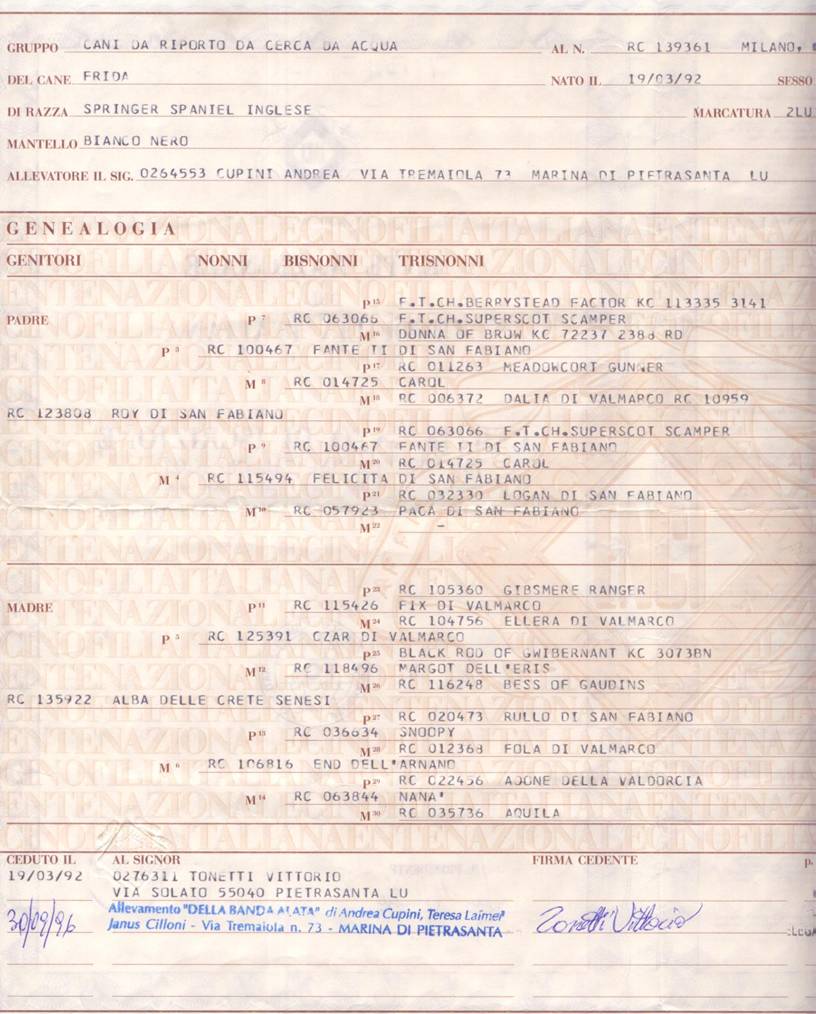 GRUPPO CANI DA RIPORTO DA CERCA DA ACQUA AL N. RC 139361 MILANO,
DEL CANE FRIDA NATO IL 19/03/92 SESSO
DI RAZZA SPRINGER SPANIEL INGLESE MARCATURA 2LU
MANTELLO BIANCO NERO
ALLEVATORE IL SIG. 0264553 CUPINI ANDREA VIA TREMAIOLA 73 MARINA DI PIETRASANTA LU
GENEALOGIA
GENITORI NONNI BISNONNI TRISNONNI
P 15 F.T.CH.BERRYSTEAD FACTOR KC 113335 3141
PADRE P 7 RC 063066 F.T.CH.SUPERSCOT SCAMPER
M 16 DONNA OF BROW KC 72237 2388 RD
P 3 RC 100467 FANTE II DI SAN FABIANO
P 17 RC 011263 MEADOWCORT GUNNER
M 8 RC 014725 CAROL
M 18 RC 006372 DALIA DI VALMARCO RC 10959
RC 123808 ROY DI SAN FABIANO
P 19 RC 063066 F.T.CH.SUPERSCOT SCAMPER
P 9 RC 100467 FANTE II DI SAN FABIANO
M 20 RC 014725 CAROL
M 4 RC 115494 FELICITA DI SAN FABIANO
P 21 RC 032330 LOGAN DI SAN FABIANO
M 10 RC 057923 PACA DI SAN FABIANO
M 22 -
P 23 RC 105360 GIBSMERE RANGER
MADRE P 11 RC 115426 FIX DI VALMARCO
M 24 RC 104756 ELLERA DI VALMARCO
P 5 RC 125391 CZAR DI VALMARCO
P 25 BLACK ROD OF GWIBERNANT KC 3073BN
M 12 RC 118496 MARGOT DELL'ERIS
M 26 RC 116248 BESS OF GAUDINS
RC 135922 ALBA DELLE CRETE SENESI
P 27 RC 020473 RULLO DI SAN FABIANO
P 13 RC 036634 SNOOPY
M 28 RC 012368 FOLA DI VALMARCO
M 6 RC 106816 END DELL'ARNANO
P 29 RC 022456 ADONE DELLA VALDORCIA
M 14 RC 063844 NANA'
M 30 RC 035736 AQUILA
CEDUTO IL AL SIGNOR FIRMA CEDENTE p.
19/03/92 0276311 TONETTI VITTORIO
VIA SOLAIO 55040 PIETRASANTA LU
Allevamento "DELLA BANDA ALATA" di Andrea Cupini, Teresa Laimer
30/09/96 Janus Cilloni - Via Tremaiola n. 73 - MARINA DI PIETRASANTA Tonetti Vittorio